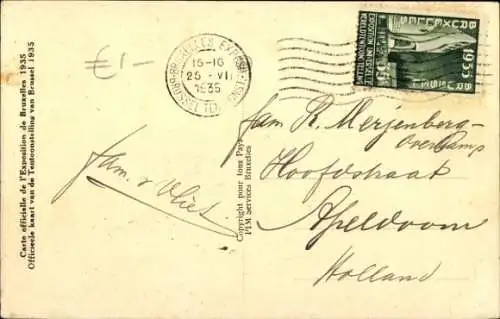 £1-
Carte officielle de l'Exposition de Bruxelles 1935
Officieele kaart van de Tentoonstelling van Brussel 1935
Fam. v Vliet
Copyright pour tous Pays
PIM services Bruxelles
15-16
25 - VII
1935
BRUXELLES
1935
BRUSSEL
EXPOSITION UNIVERSELLE
WERELDTENTOONSTELLING
Fam R. Merjenberg-
Overkamp
Hoofdstraat
Apeldoorn
Holland